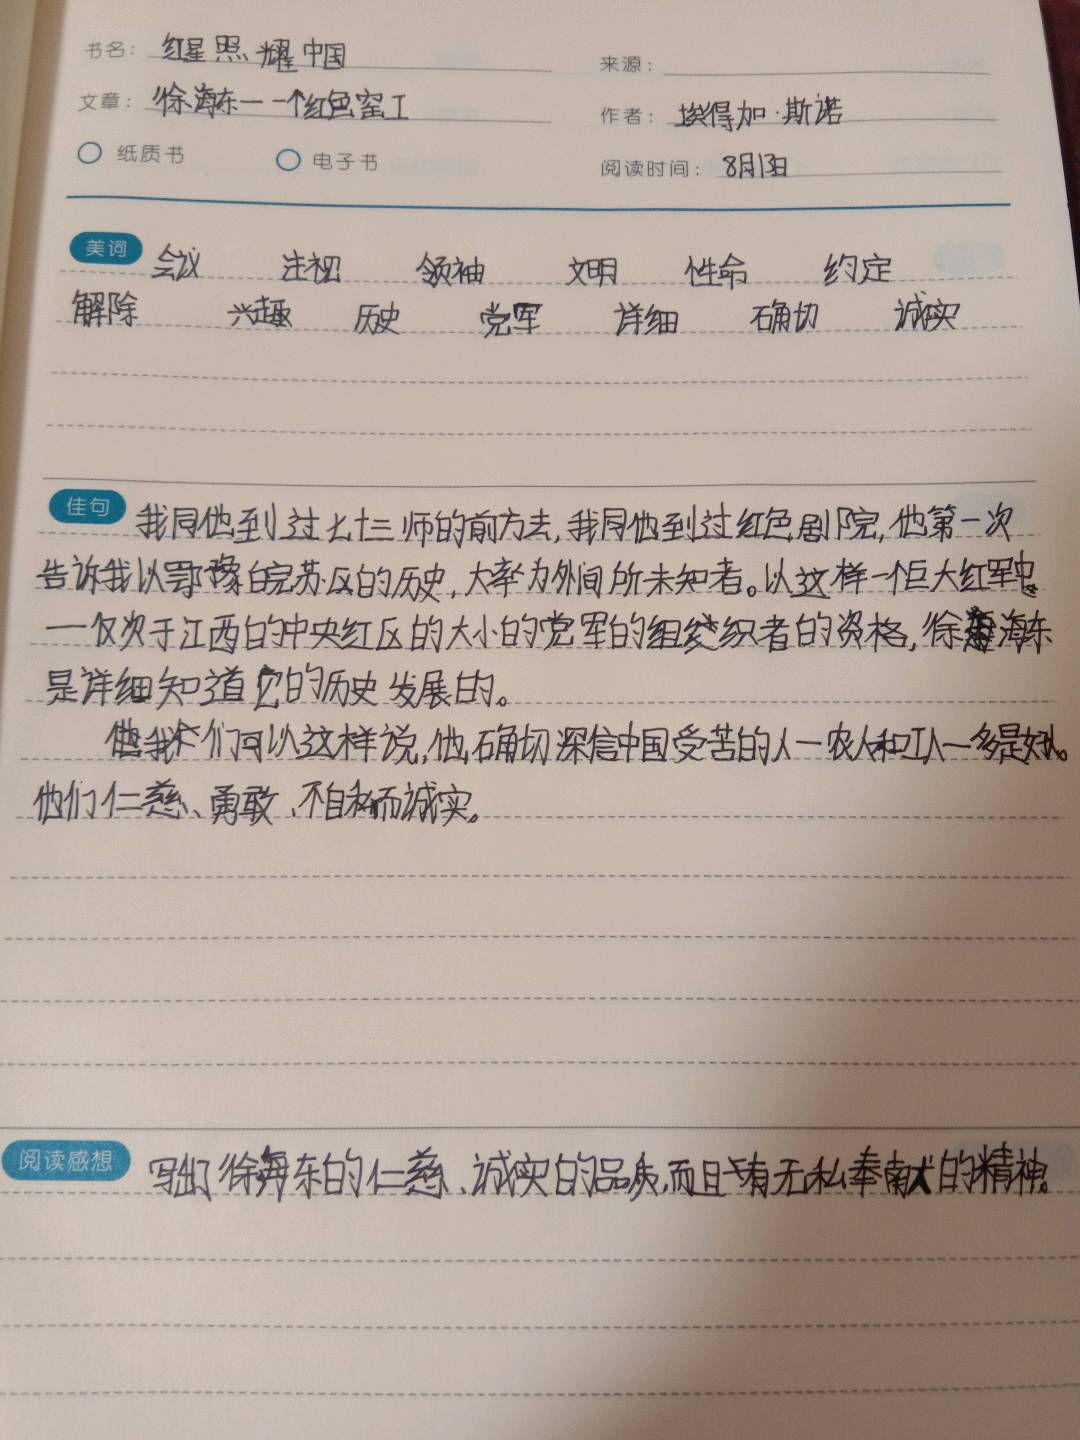 书名： 红星照耀中国 来源：
文章： 徐海东——个红色窑工 作者： 埃得加·斯诺
纸质书 电子书 阅读时间： 8月13日
美词 会议 注视 领袖 文明 性命 约定
解除 兴趣 历史 党军 详细 确切 诚实
佳句 我同他到过七十三师的前方去,我同他到过红色剧院,他第一次
告诉我以鄂豫皖苏区的历史,大率为外间所未知者。以这样一个巨大红军
一仅次于江西的中央红区的大小的党军的组织者的资格,徐海东
是详细知道它的历史发展的。
我们可以这样说,他确切深信中国受苦的人一农人和工人一多是好人。
他们仁慈、勇敢、不自私而诚实。
阅读感想 写出了徐海东的仁慈、诚实的品质,而且有无私奉献的精神。